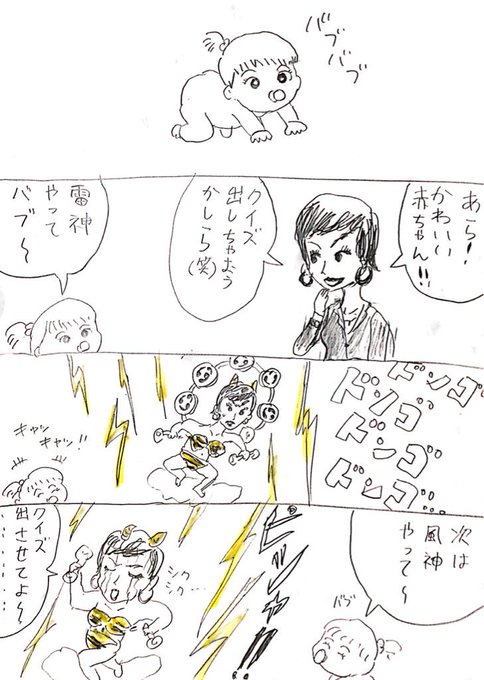 バブバブ
あら！
かわいい
赤ちゃん!!
クイズ
出しちゃおう
かしら(笑)
雷神
やって
バブ〜
ドンゴ
ドンゴ
ドンゴ
ドンゴ…
キャッ
キャッ!!
次は
風神
やって〜
バブ
ピシャ!!
シク
シク…
クイズ
出させてよ〜
………